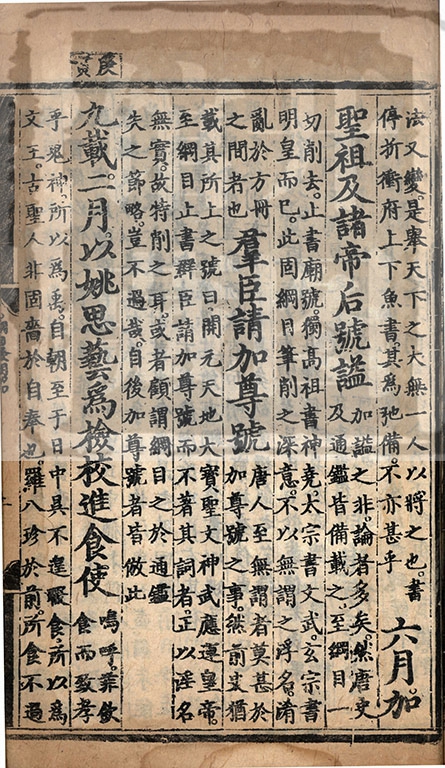 法又變。是舉天下之大無一人以將之也。書
停折衝府上下魚書。其爲弛備不亦甚乎
六月加
聖祖及諸帝后號謚
加謚之非。論者多矣。然唐史
及通鑑皆備載之。至綱目一
切削去。止書廟號。獨高祖書神堯。太宗書文武。玄宗書
明皇而已。此固綱目筆削之深意。不以無謂之浮名。淆
亂於方冊
之間者也
羣臣請加尊號
唐人至無謂者莫甚於
加尊號之事。然前史猶
載其所上之號曰。開元天地大寶聖文神武應運皇帝。
至綱目止書群臣請加尊號而不著其詞者。正以淫名
無實。故特削之耳。或者顧謂綱目之於通鑑
失之節略。豈不過哉。自後加尊號者皆倣此
庚寅
九載。二月。以姚思藝爲檢校進食使
嗚呼。菲飲
食而致孝
乎鬼神。所以爲禹。自朝至于日中昃不遑暇食。所以爲
文王。古聖人非固嗇於自奉也。羅八珍於前。所食不過